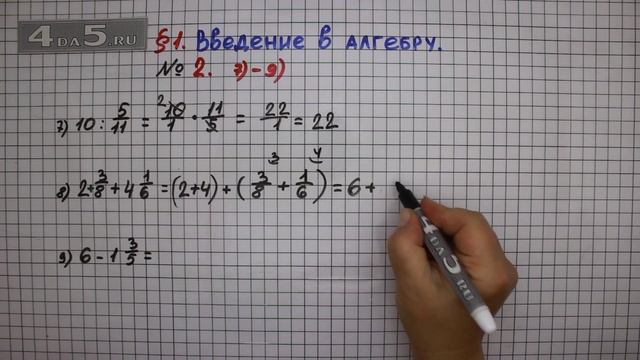 4DA5.RU
§1. Введение в алгебру.
№ 2. 7)-9)
7) 10 : 5/11 = 10/1 · 11/5 = 22/1 = 22
8) 2+3/8 + 4 1/6 = (2+4) + (3/8 + 1/6) = 6 +
9) 6 - 1 3/5 =